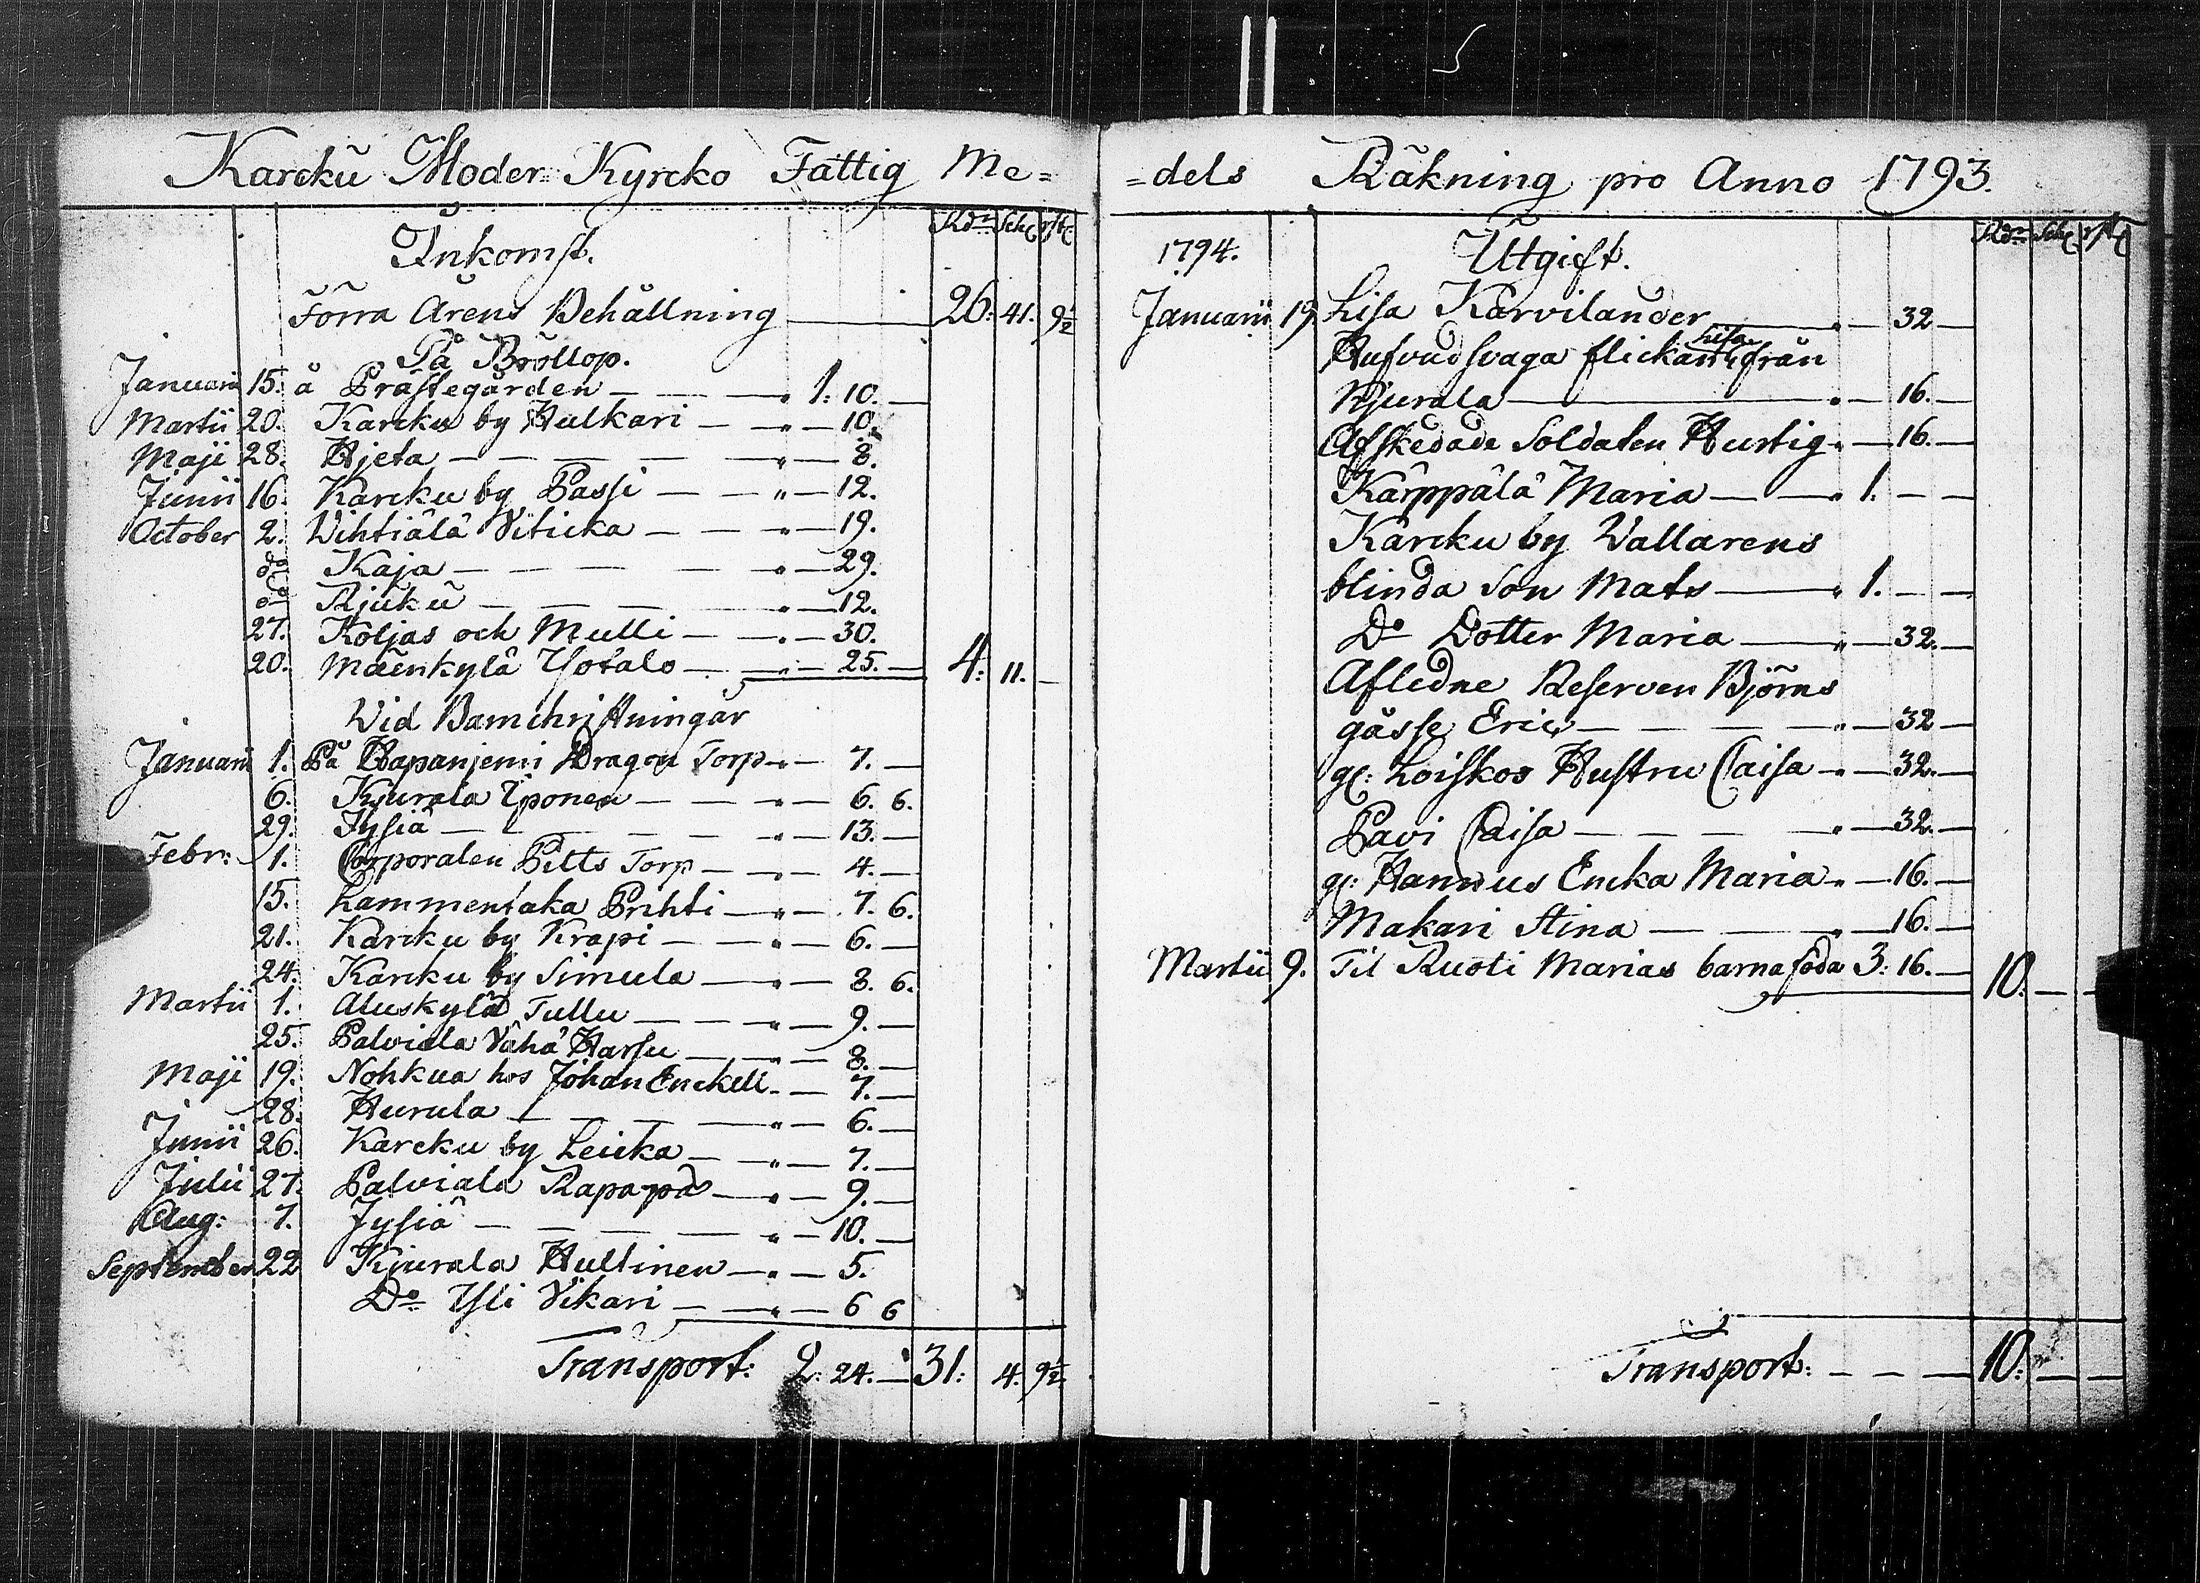 Karcku Moder= Kyrcko Fattig Me=
Rdr Sch rst
Inkomst.
Förra Årens Behållning 26. 41. 9½
På Bröllop.
Januarii 15. å Prästegården — — " 1. 10. —
Martii 20. Karcku by Hulkari — " — 10.
Maji 28. Hjeta — — — — " — 8.
Junii 16. Karcku by Passi — — " — 12.
October 2. Wihtiälä Viticka — — " — 19.
do Kaja — — — — " — 29.
do Kjuku — — — " — 12.
27. Koljas och Mulli — " — 30.
20. Mäenkylä Ysotalo — " — 25. — 4. 11. —
Wid Barnchristningar
Januarii 1. På Hapanjemi Dragon Torp " — 7. —
6. Kjurala Iponen — — " — 6. 6.
29. Jysiä — — — — " — 13. —
Febr: 1. Corporalen Pilts Torp — " — 4. —
15. Lammentaka Prihti — " — 7. 6.
21. Karcku by Krapi — — " — 6. —
24. Karcku by Simula — " — 8. 6.
Martii 1. Aluskylä Tullu — — " — 9. —
25. Palviala Vähä Harsu — " — 8. —
Maji 19. Nohkua hos Johan Enckell — 7. —
28. Hurula — — — " — 6. —
Junii 26. Karcku by Leicka — " — 7. —
Julii 27. Palviala Rapapä — " — 9. —
Aug: 7. Jysiä — — — " — 10. —
September 22 Kjurala Hultinen — " — 5.
Do Yli Vikari — " — 6 6
Transport: 2. 24. — 31. 4. 9½
=dels Räkning pro Anno 1793.
Rdr Sch rst
1794. Utgift.
Januarii 19. Lisa Karvilander " — 32 —
Lisa
Hufvudsvaga flickan från
Kjurala — " — 16. —
Afskedade Soldaten Hurtig " — 16. —
Kärppälä Maria — — " 1. — —
Karcku by Wallarens
blinda Son Mats — " 1. — —
Do Dotter Maria — " — 32. —
Afledne Reserven Björns
gåsse Eric — — — " — 32 —
gl: Loiskos Hustru Caisa " — 32. —
Pavi Caisa — — — " — 32. —
gl: Hannus Encka Maria " — 16. —
Makari Stina — — " — 16. —
Martii 9. Til Ruoti Marias barna föda 3: 16. — 10. — —
Transport: — — — 10. — —